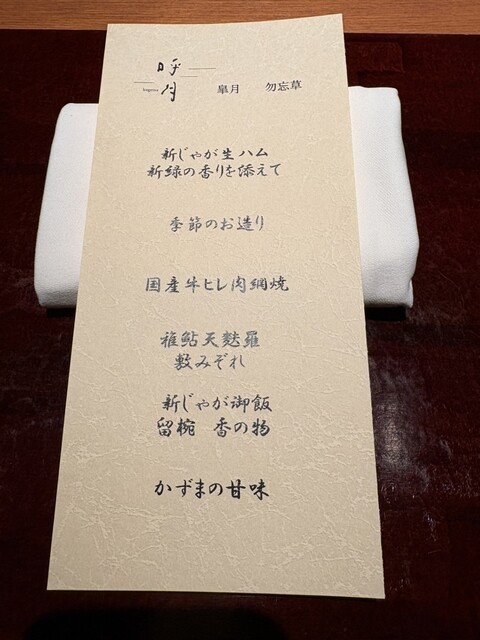 呼月
皐月 勿忘草
新じゃが生ハム
新緑の香りを添えて
季節のお造り
国産牛ヒレ肉網焼
稚鮎天麩羅
敷みぞれ
新じゃが御飯
留椀 香の物
かずまの甘味